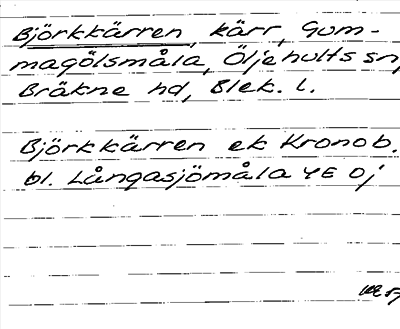 Björkkärren, kärr, Gum-
magölsmåla, Öljehults sn,
Bräkne hd, Blek. l.
Björkkärren ek Kronob.
bl. Långasjömåla 4E 0j